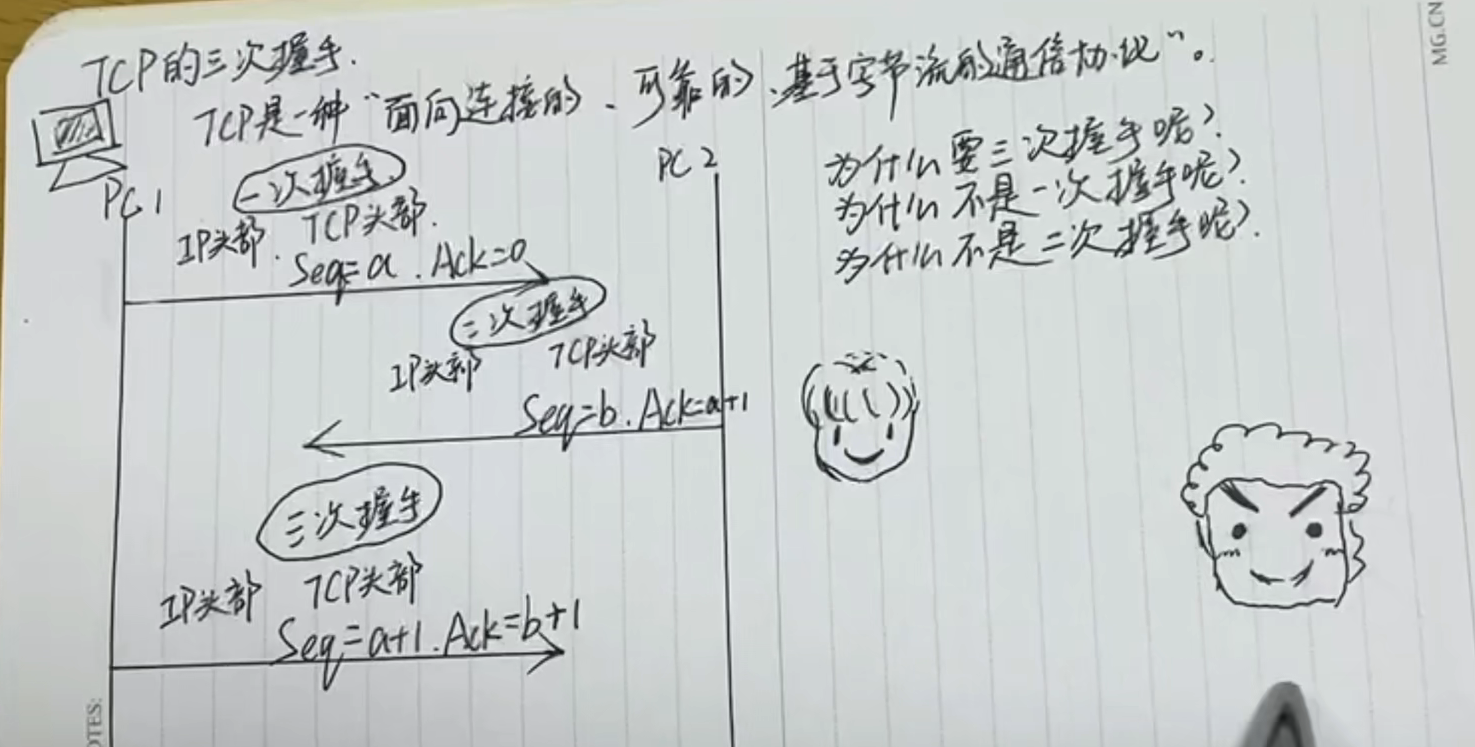 TCP的三次握手.
TCP是一种“面向连接的、可靠的、基于字节流的通信协议”。
PC1
PC2
一次握手
IP头部. TCP头部.
Seq=a. Ack=0
二次握手
IP头部 TCP头部
Seq=b. Ack=a+1
三次握手
IP头部 TCP头部
Seq=a+1. Ack=b+1
为什么要三次握手呢?
为什么不是一次握手呢?
为什么不是二次握手呢?
MG.CN
OTES: